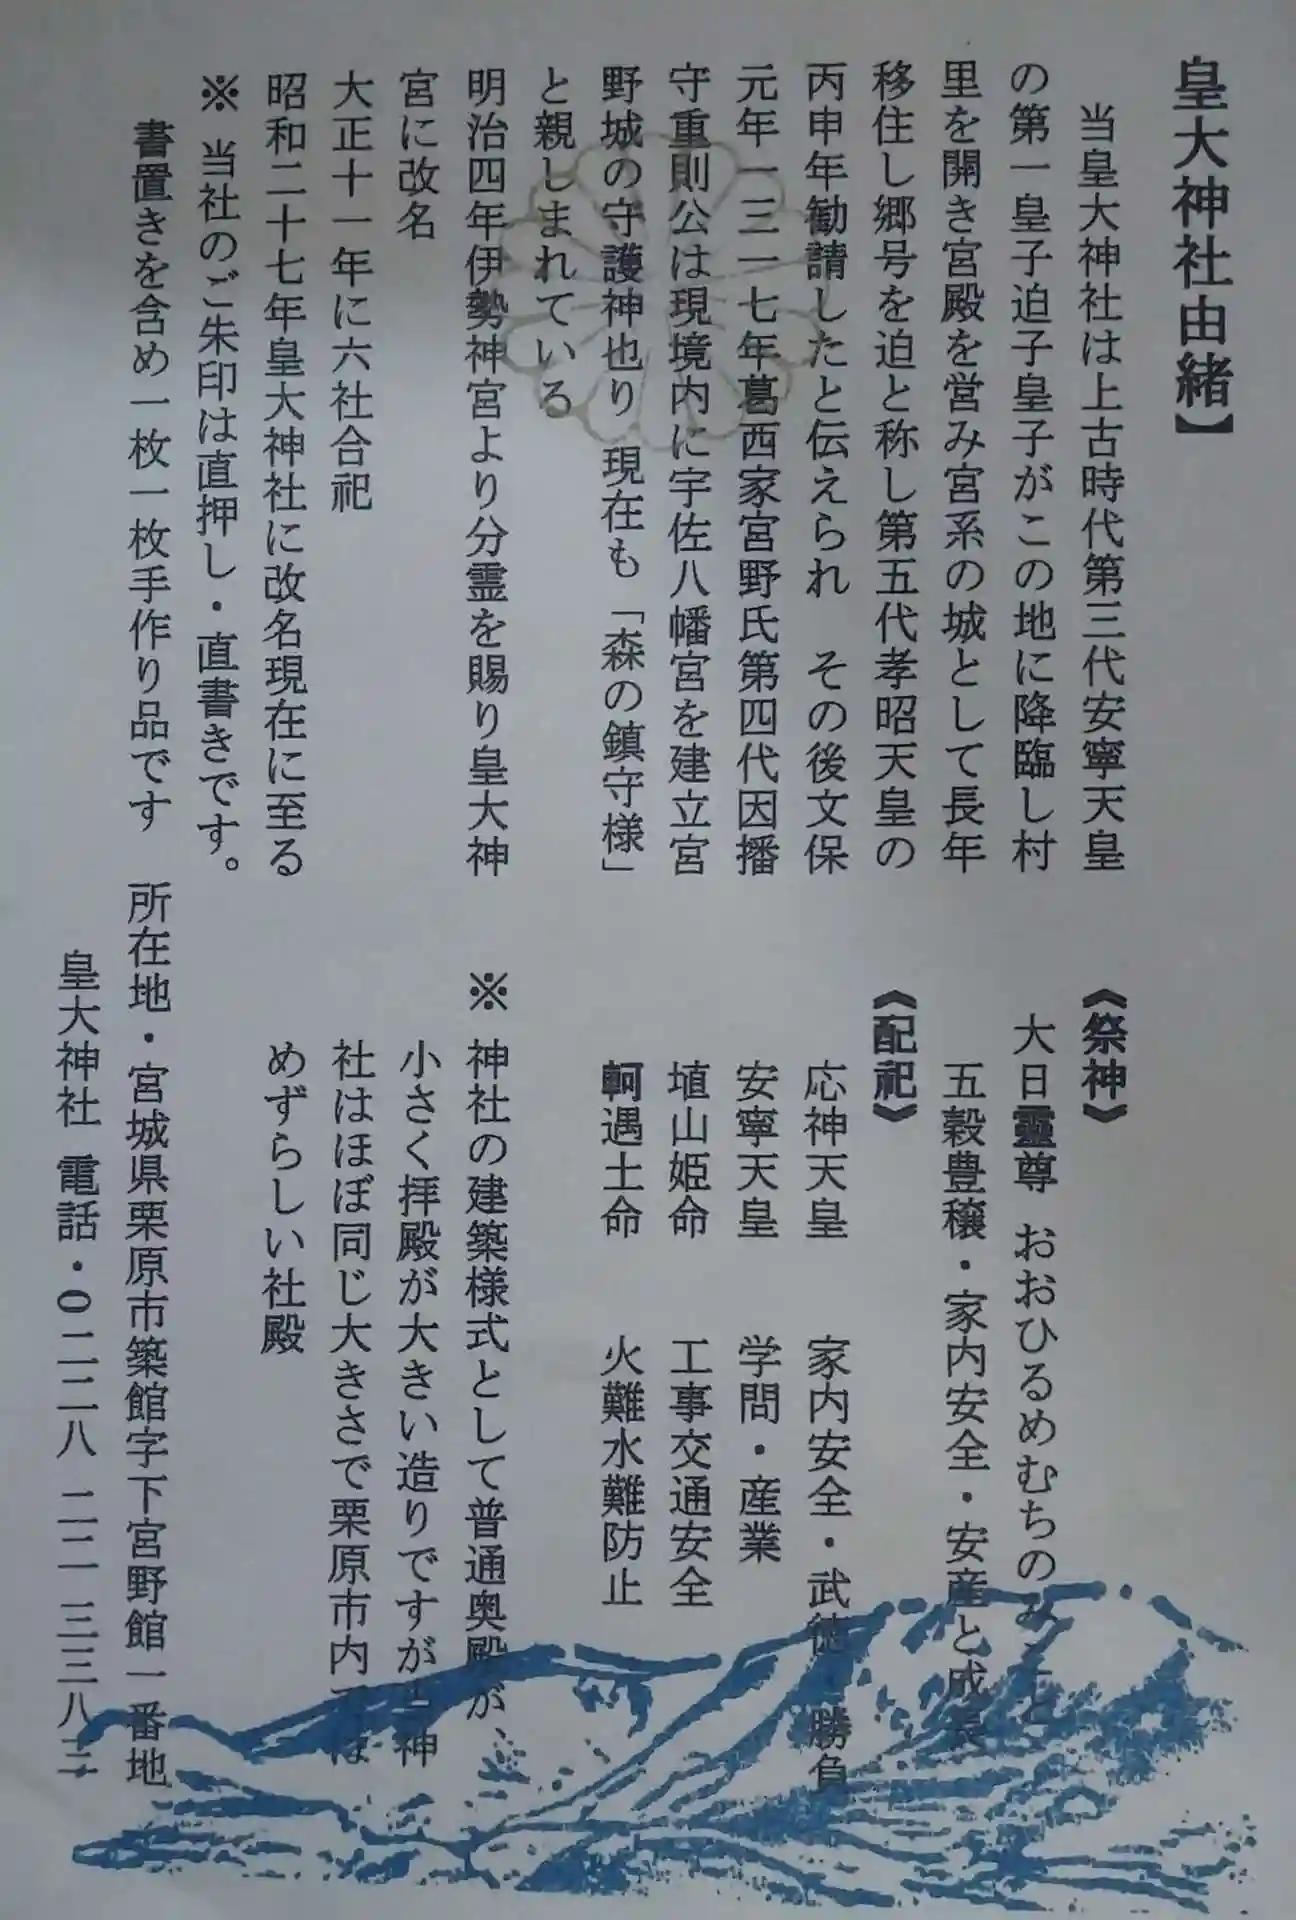 皇大神社由緒】
当皇大神社は上古時代第三代安寧天皇
の第一皇子迫子皇子がこの地に降臨し村
里を開き宮殿を営み宮系の城として長年
移住し郷号を迫と称し第五代孝昭天皇の
丙申年勧請したと伝えられ　その後文保
元年一三一七年葛西家宮野氏第四代因播
守重則公は現境内に宇佐八幡宮を建立宮
野城の守護神也り　現在も「森の鎮守様」
と親しまれている
明治四年伊勢神宮より分霊を賜り皇大神
宮に改名
大正十一年に六社合祀
昭和二十七年皇大神社に改名現在に至る
※ 当社のご朱印は直押し・直書きです。
書置きを含め一枚一枚手作り品です
《祭神》
大日靈尊　おおひるめむちのみこと
五穀豊穣・家内安全・安産と成長
《配祀》
応神天皇　家内安全・武徳・勝負
安寧天皇　学問・産業
埴山姫命　工事交通安全
軻遇土命　火難水難防止
※ 神社の建築様式として普通奥殿が、
小さく拝殿が大きい造りですが当神
社はほぼ同じ大きさで栗原市内では
めずらしい社殿
所在地・宮城県栗原市築館字下宮野館一番地
皇大神社　電話・〇二二八 二二 三三八三